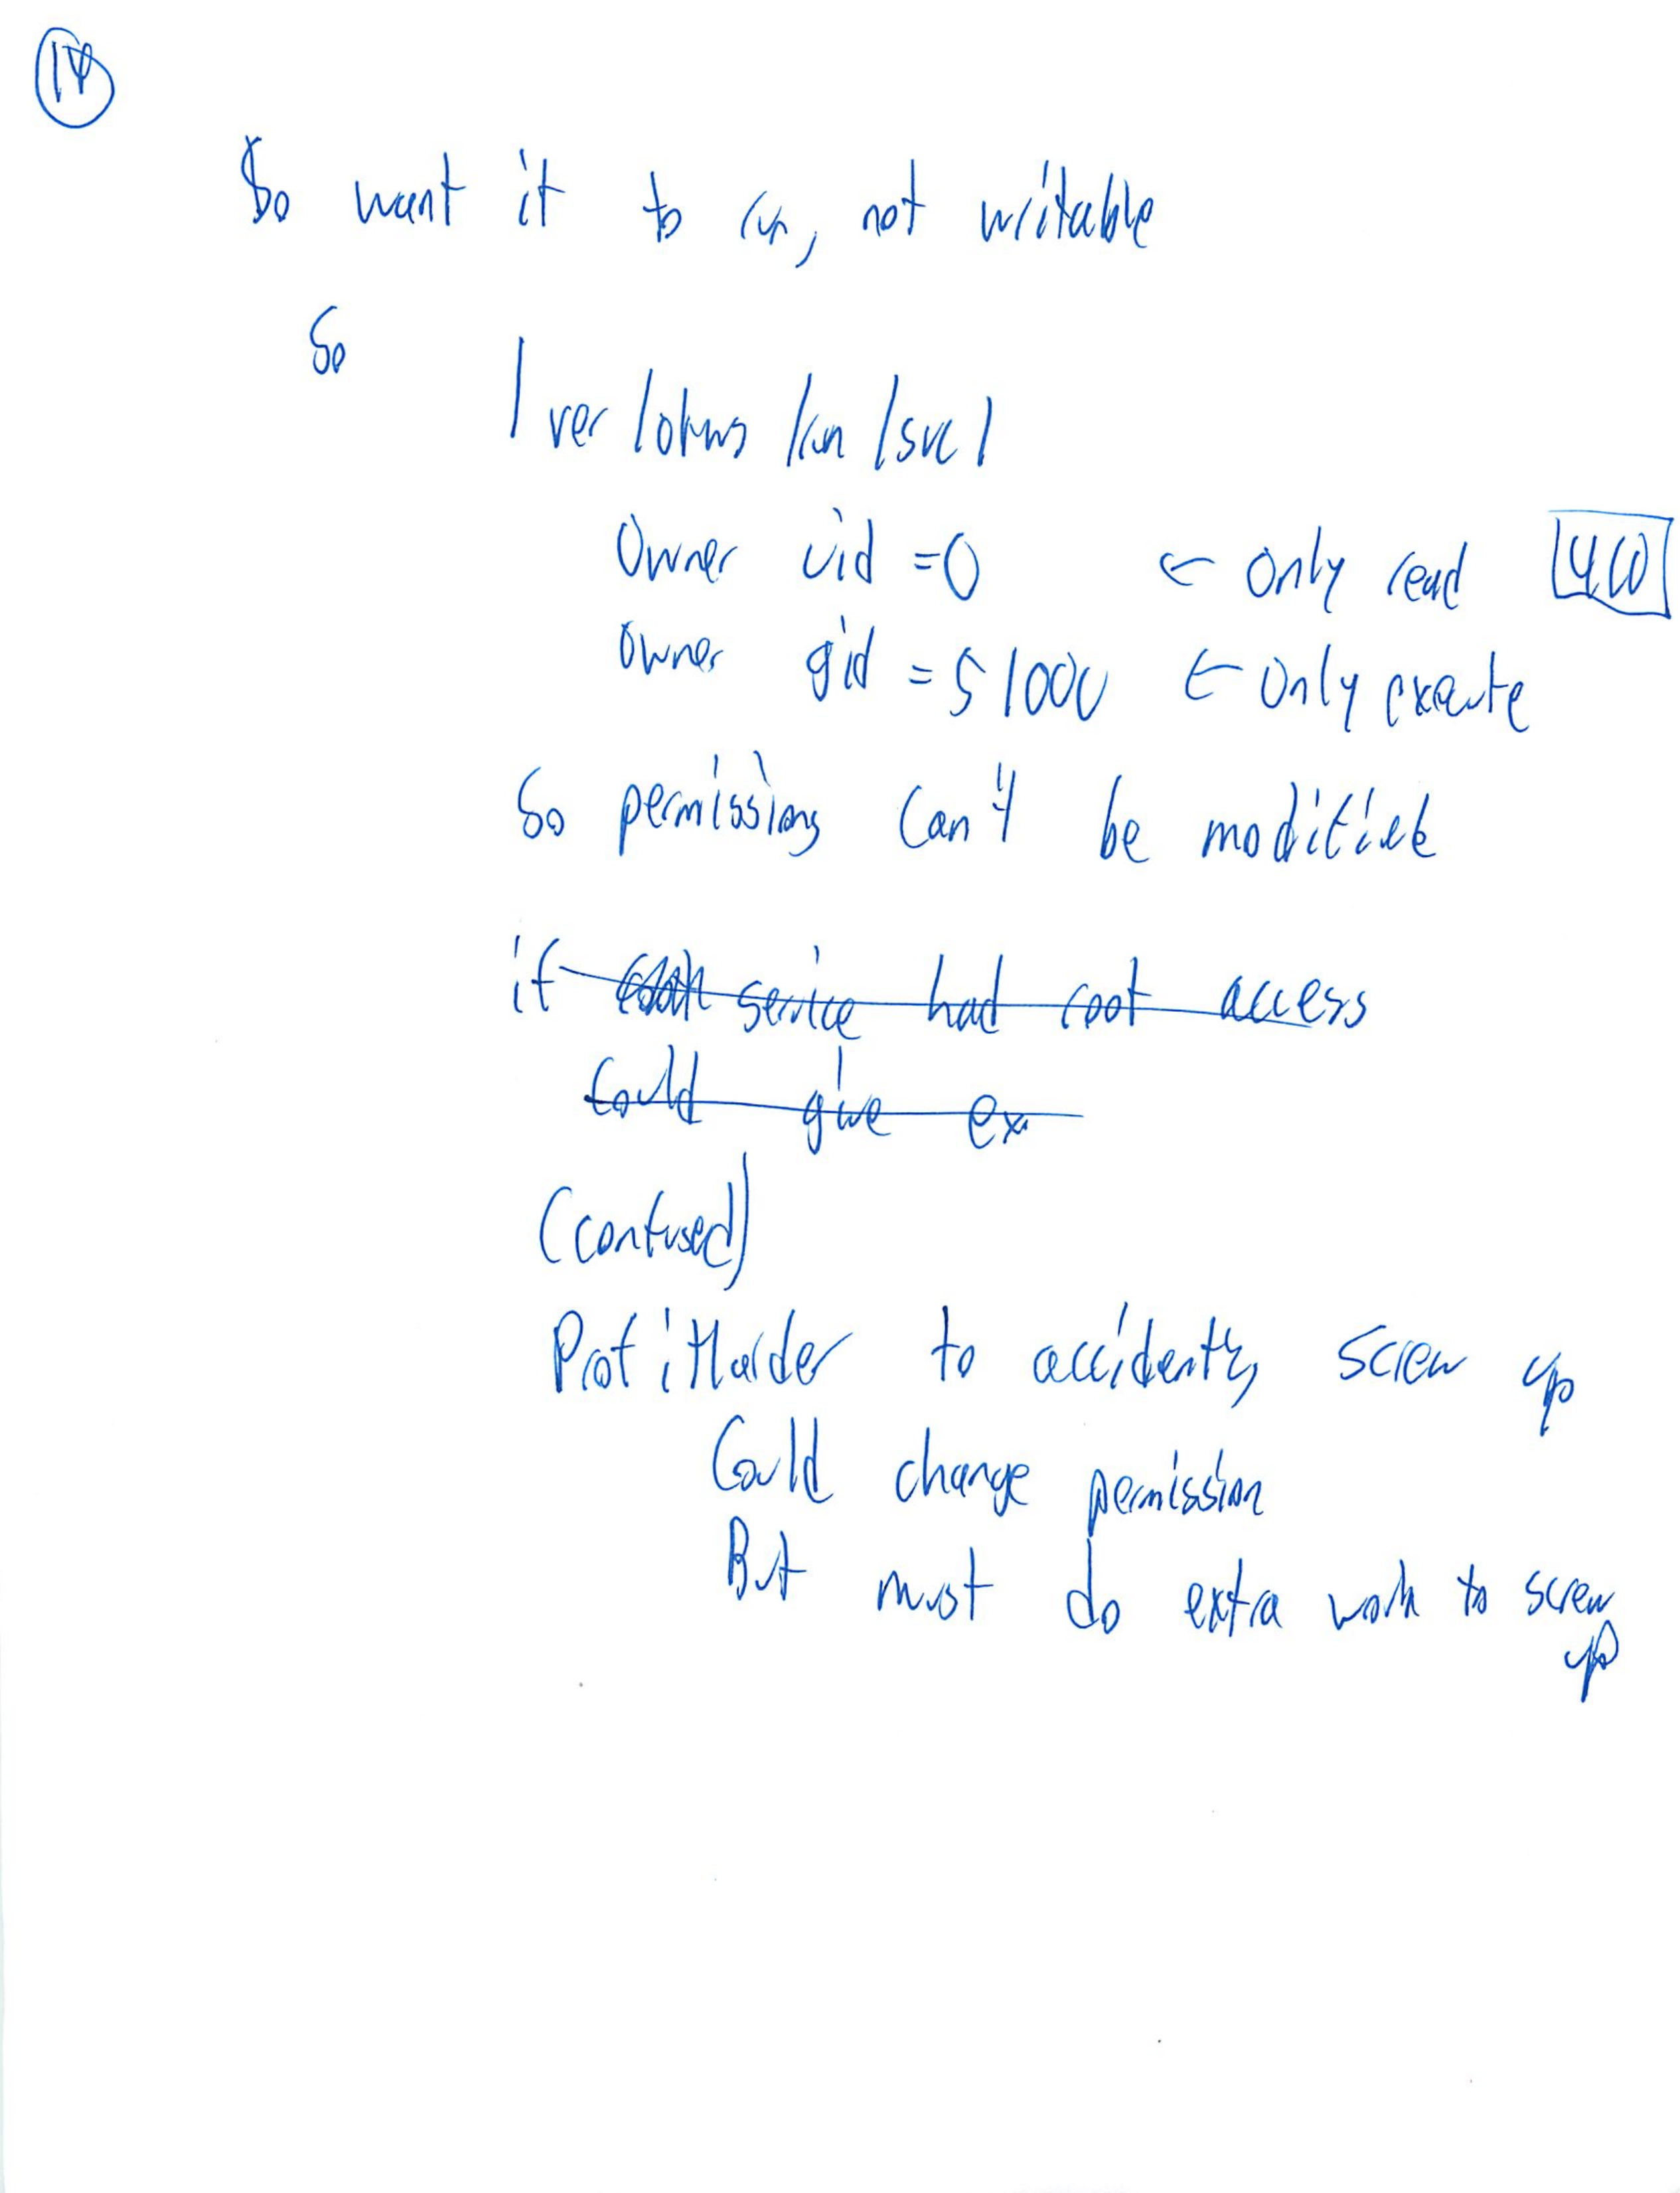 14
So want it to run, not writable
So
/ver/okws/run/svc/
Owner uid = 0 ← only read 410
Owner gid = 51000 ← only execute
So permissions can't be modified
if service had root access
Could give ex
(confused)
Prof: Harder to accidently screw up
Could change permission
But must do extra work to screw
up